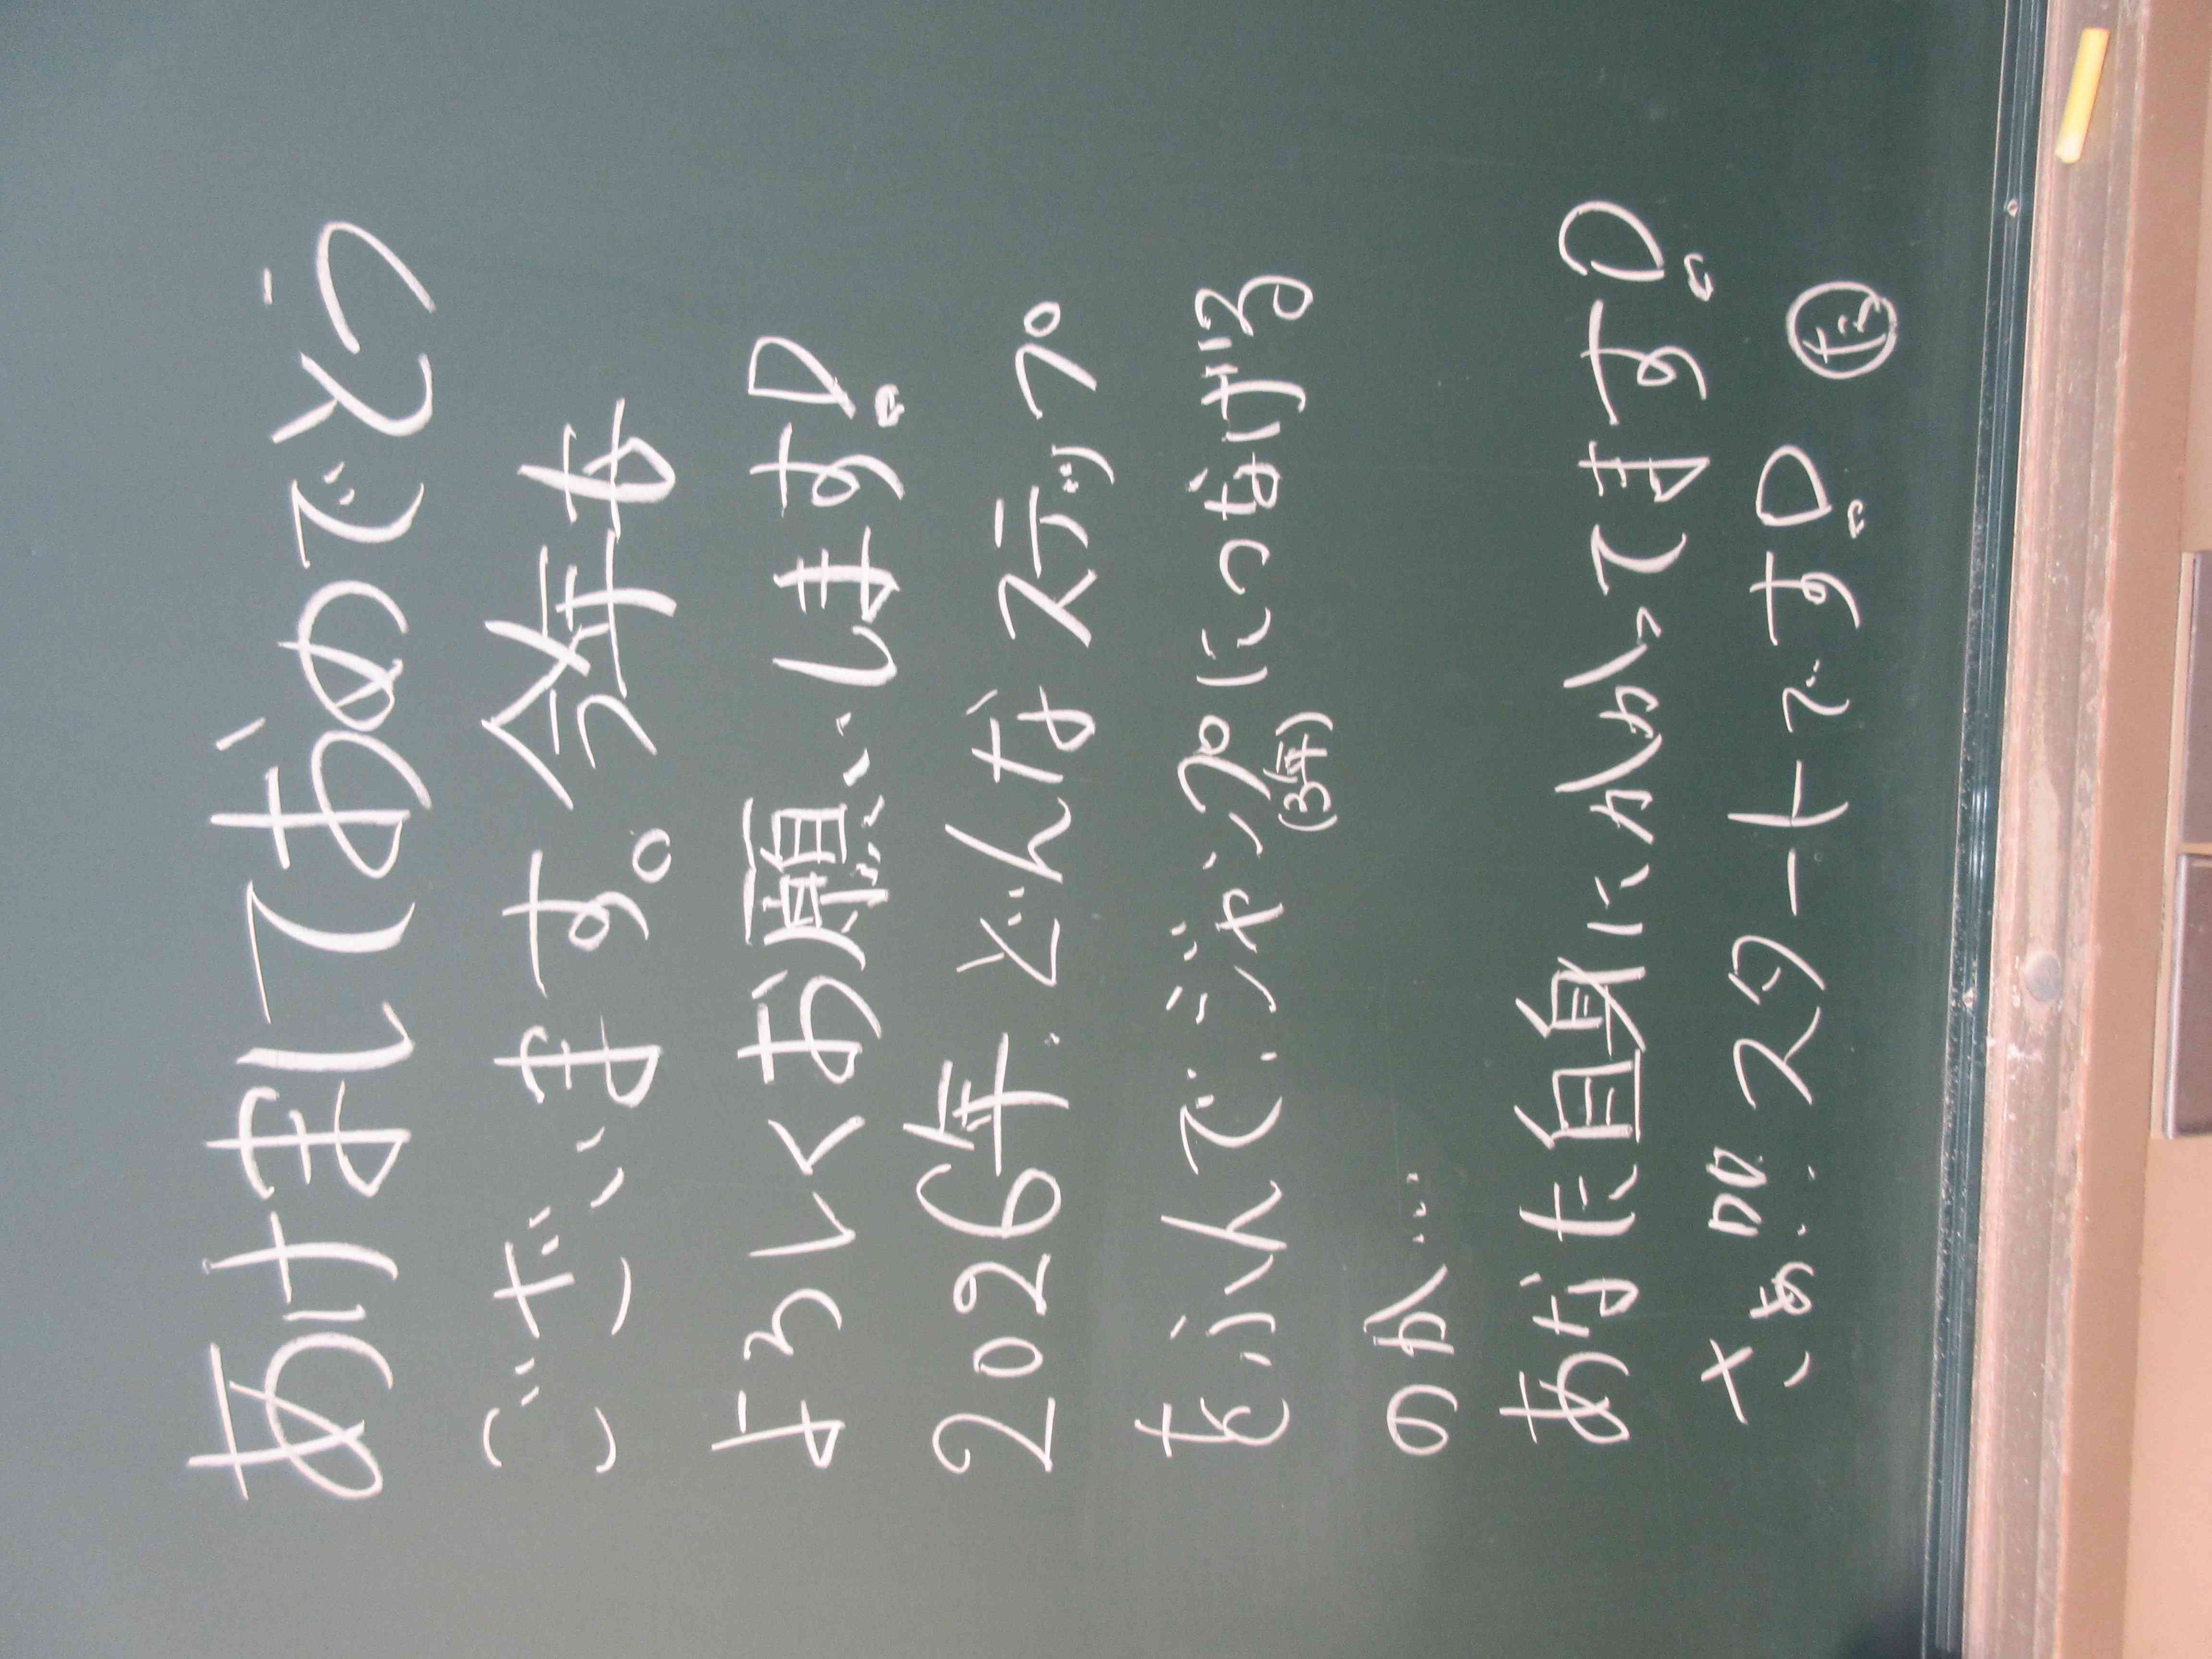 あけましておめでとう
ございます。今年も
よろしくお願いします!
2026年. どんなステップ
をふんで. ジャンプにつなげる
(3年)
のか…
あなた自身にかかってます!
さあ!! スタートです! た